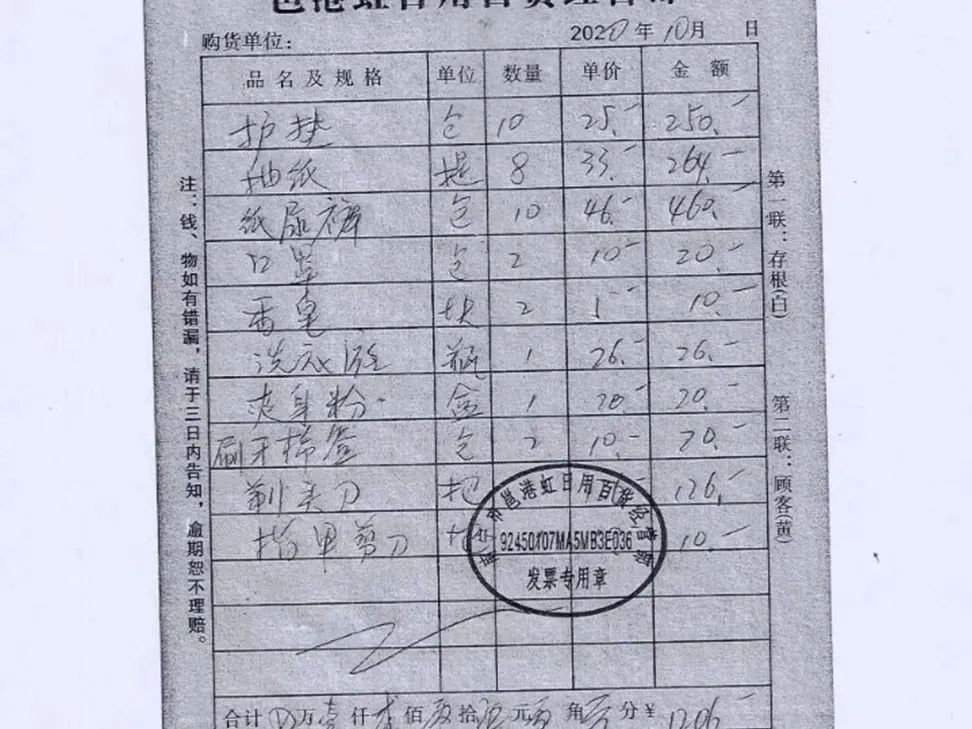 邕港虹日用百货经营部
购货单位： 2020年10月 日
品名及规格 单位 数量 单价 金额
护垫 包 10 25.- 250.-
抽纸 提 8 33.- 264.-
纸尿裤 包 10 46.- 460.-
口罩 包 2 10- 20.-
香皂 块 2 5- 10.-
洗衣液 瓶 1 26.- 26.-
爽身粉 盒 1 20.- 20.-
刷牙棉签 包 2 10.- 20.-
剃头刀 把 126.-
指甲剪刀 10.-
合计 万壹仟贰佰零拾陆元零角零分￥1206.-
注：钱、物如有错漏，请于三日内告知，逾期恕不理赔。
第一联：存根(白)
第二联：顾客(黄)
邕港虹日用百货经营部
92450107MA5MB3E036
发票专用章